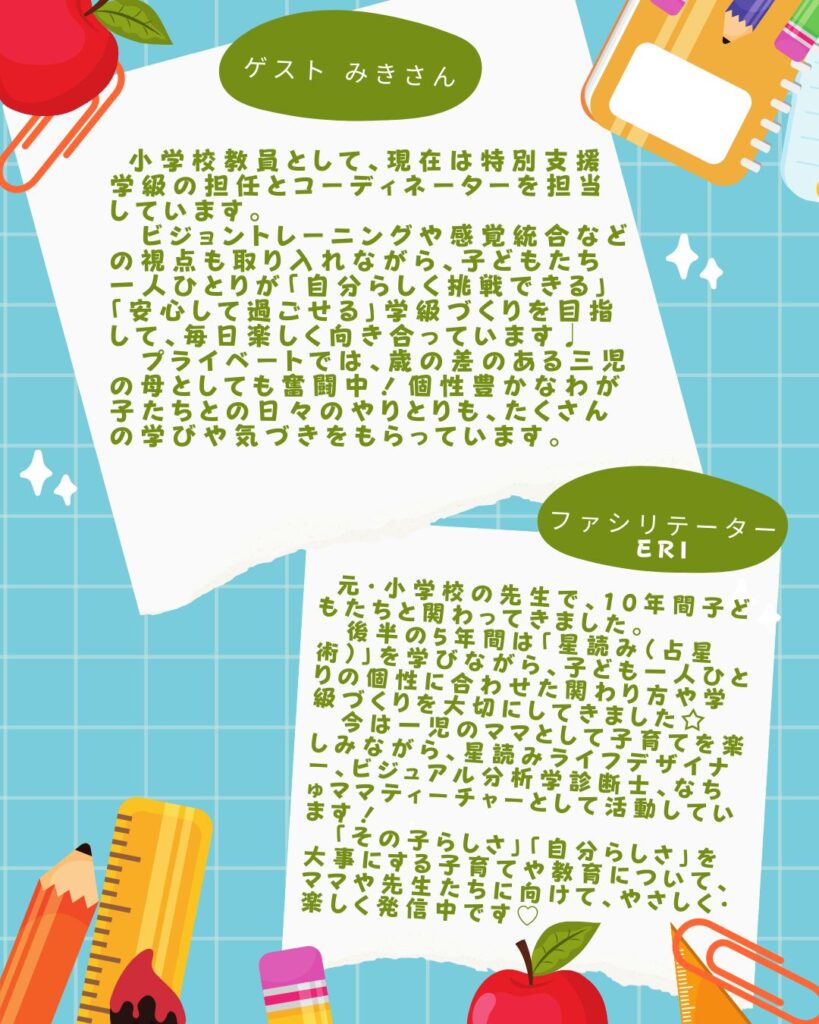 ゲスト みきさん
小学校教員として、現在は特別支援
学級の担任とコーディネーターを担当
しています。
ビジョントレーニングや感覚統合など
の視点も取り入れながら、子どもたち
一人ひとりが「自分らしく挑戦できる」
「安心して過ごせる」学級づくりを目指
して、毎日楽しく向き合っています♩
プライベートでは、歳の差のある三児
の母としても奮闘中！個性豊かなわが
子たちとの日々のやりとりも、たくさん
の学びや気づきをもらっています。
ファシリテーター
ERI
元・小学校の先生で、10年間子ど
もたちと関わってきました。
後半の5年間は「星読み(占星
術)」を学びながら、子ども一人ひと
りの個性に合わせた関わり方や学
級づくりを大切にしてきました☆
今は一児のママとして子育てを楽
しみながら、星読みライフデザイナ
ー、ビジュアル分析学診断士、なち
ゅママティーチャーとして活動してい
ます！
「その子らしさ」「自分らしさ」を
大事にする子育てや教育について、
ママや先生たちに向けて、やさしく・
楽しく発信中です♡